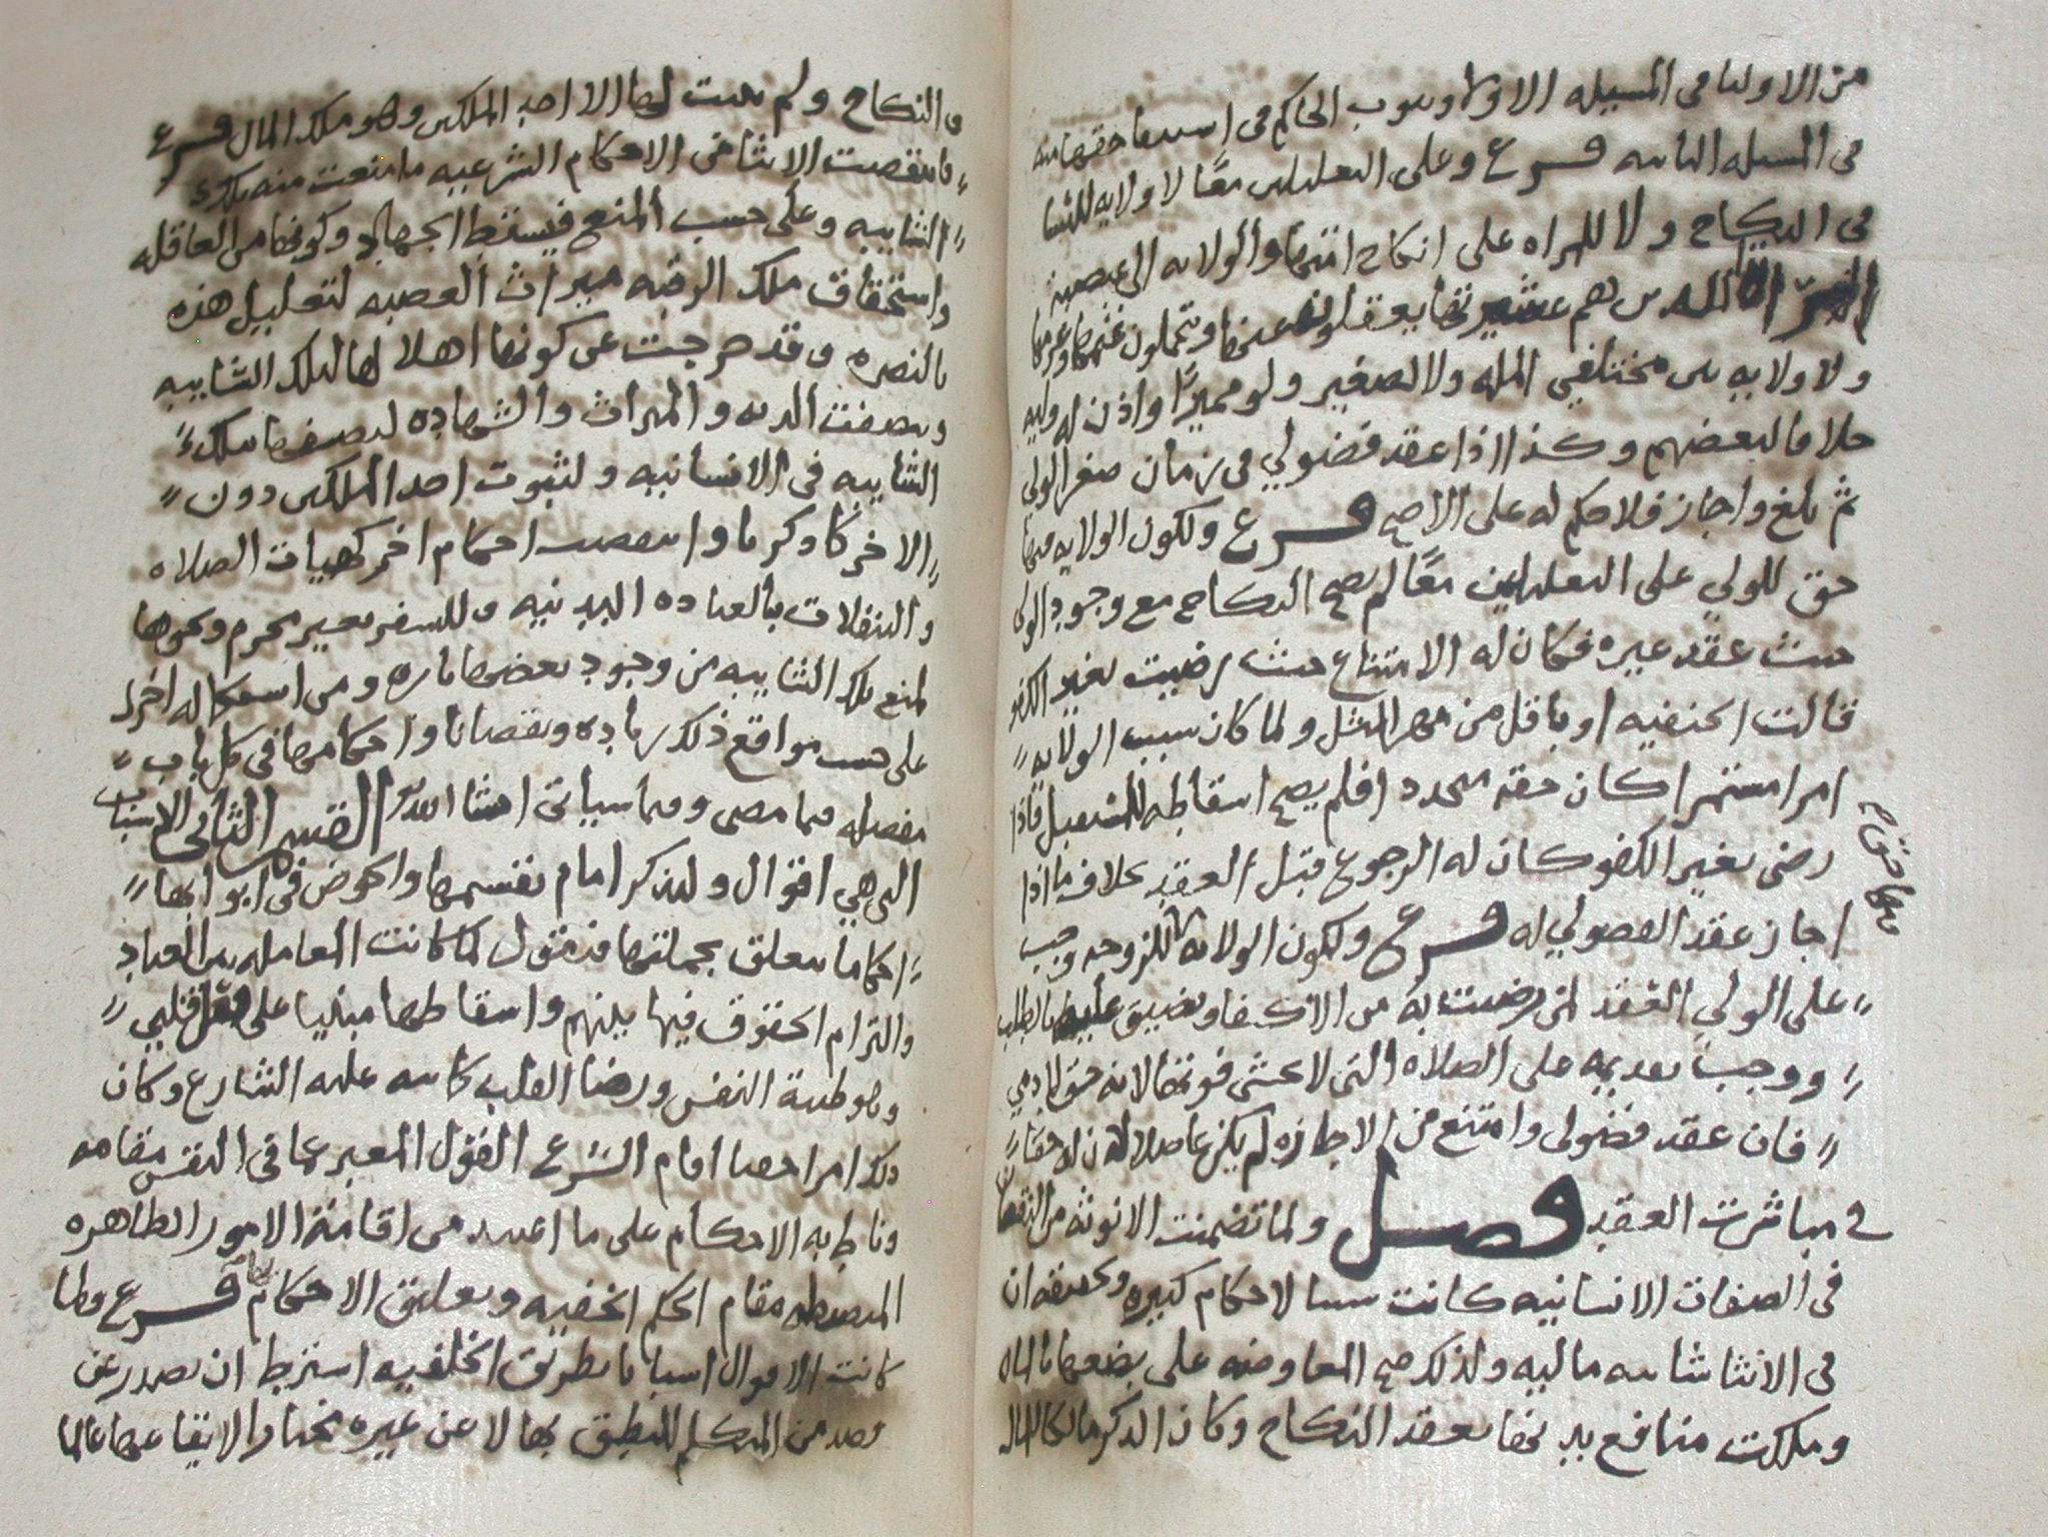 من الاوليا في المسيله الاولا وينوب الحاكم في استيفا حقها منه
في المسيله الثانيه فرع وعلى التعليلين معًا لا ولايه للنسا
في النكاح ولا للمراه على انكاح امتها والولايه الى عصبه
الذين هم عشيرتها يعقلون عنها ويتحملون غنمها وغرمها
ولا ولايه بين مختلفي المله ولا لصغير ولو مميزًا واذن له وليه
خلافا لبعضهم وكذا اذا عقد فضولي في زمان صغر الولي
ثم بلغ واجاز فلا حكم له على الاصح فرع ولكون الولايه فيها
حق للولي على التعليلين معًا لم يصح النكاح مع وجود الولي
حيث عقد غيره فكان له الامتناع حيث رضيت بغير الكفو
قالت الحنفيه او باقل من مهر المثل ولما كان سبب الولايه
امرا مستمرا كان حقه متجددا فلم يصح اسقاطه للمستقبل فاذا
رضى بغير الكفو كان له الرجوع قبل العقد بخلاف ما اذا
اجاز عقد الفضولي له فرع ولكون الولايه للزوجه وجب
على الولي العقد لمن رضيت به من الاكفا وتضيق عليه بالطلب
ووجب تقديمه على الصلاه التي لا يخشى فوتها لانه حق ادمي
فان عقد فضولي وامتنع من الاجازه لم يكن عاضلا لان له حقًا
في مباشرت العقد فصل ولما تضمنت الانوثه من النقصان
في الصفات الانسانيه كانت سببا لاحكام كثيره وتحقيقه ان
في الانثا شايبه ماليه ولذلك صح المعاوضه على بضعها بالمال
وملكت منافع بدنها بعقد النكاح وكان الذكر مالكا للمال
والنكاح ولم يثبت لها الا احد الملكين وهو ملك المال فرع
فانتقصت الانثا في الاحكام الشرعيه ما منعت منه تلك
الشايبه وعلى حسب المنع فيسقط الجهاد وكونها من العاقله
واستحقاق ملك الرقبه ميراث العصبه لتعليل هذه
بالنصره وقد خرجت عن كونها اهلا لها لتلك الشايبه
وتنصفت الديه والميراث والشهاده لتنصفها بتلك
الشايبه في الانسانيه ولثبوت احد الملكين دون
الاخر كما ذكرنا وانتقصت احكام اخر كهيات الصلاه
والتنفلات بالعباده البدنيه وللسفر بغير محرم ونحوها
لمنع تلك الشايبه من وجود بعضها تاره ومن استكماله اخرى
على حسب مواقع ذلك زياده ونقصانا واحكامها في كل باب
مفصله فيما مضى وفيما سياتي انشا الله القسم الثاني الاسباب
التي هي اقوال ولنذكر امام تقسيمها والخوض في ابوابها
احكاما تتعلق بجملتها فنقول لما كانت المعامله بين العباد
والتزام الحقوق فيها بينهم واسقاطها مبنيا على فعل قلبي
وهو طيبة النفس ورضا القلب كما نبه عليه الشارع وكان
ذلك امرا خفيا اقام الشرع القول المعبر عما في النفس مقامه
وناط به الاحكام على ما اعتمد من اقامة الامور الظاهره
المنضبطه مقام الحكم الخفيه وتعليق الاحكام بها فرع ولما
كانت الاقوال اسبابا بطريق الخلفيه اشترط ان تصدر عن
قصد من المتكلم للنطق بها لا عن غيره مختارا لايقاعها عالما